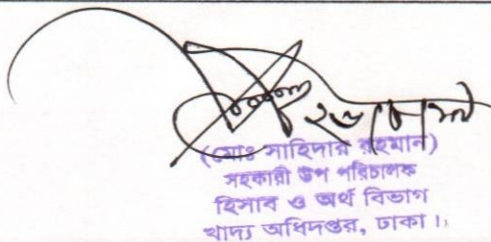 (মোঃ সাহিদার রহমান)
সহকারী উপ পরিচালক
হিসাব ও অর্থ বিভাগ
খাদ্য অধিদপ্তর, ঢাকা।